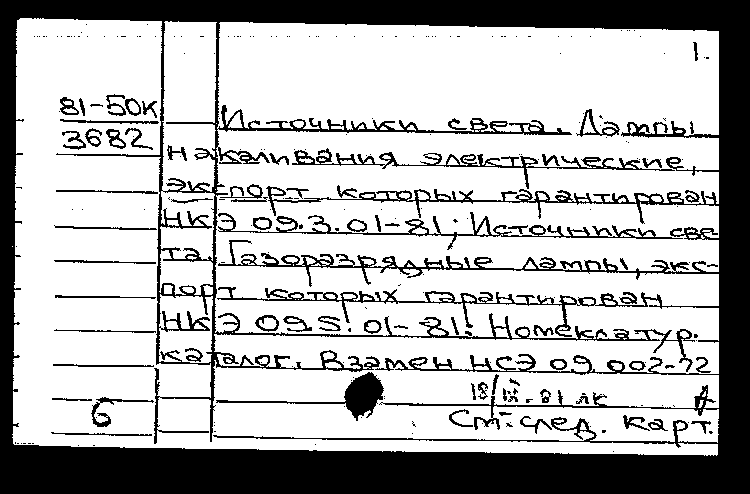 1.
81-50К
3682
Источники света. Лампы
накаливания электрические,
экспорт которых гарантирован
НКЭ 09.3.01-81; Источники све
та. Газоразрядные лампы, экс-
порт которых гарантирован
НКЭ 09.5.01-81: Номеклатур.
каталог. Взамен НСЭ 09.002-72
18/IX.81 ЛК
6
См. след. карт.